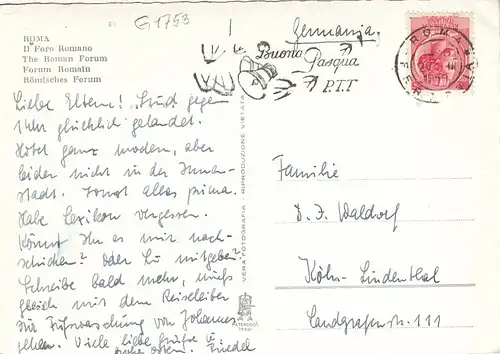 G1753
ROMA
Il Foro Romano
The Roman Forum
Forum Romain
Römisches Forum
Germania.
Buona
Pasqua
P.T.T
ROMA
FERR
Liebe Eltern! Sind gegen
1 Uhr glücklich gelandet.
Hotel ganz modern, aber
leider nicht in der Innen-
stadt. Sonst alles prima.
Habe Lexikon vergessen.
Könnt Ihr es mir nach-
schicken? Oder Lu mitgeben?
Schreibe bald mehr, muß
gleich mit dem Reiseleiter
zur Fußwaschung von Johannes
gehen. Viele liebe Grüße u.
frohe Ostern. Friedel
VERA FOTOGRAFIA - RIPRODUZIONE VIETATA
Familie
D. J. Waldorf
Köln-Lindenthal
Landgrafenstr. 111